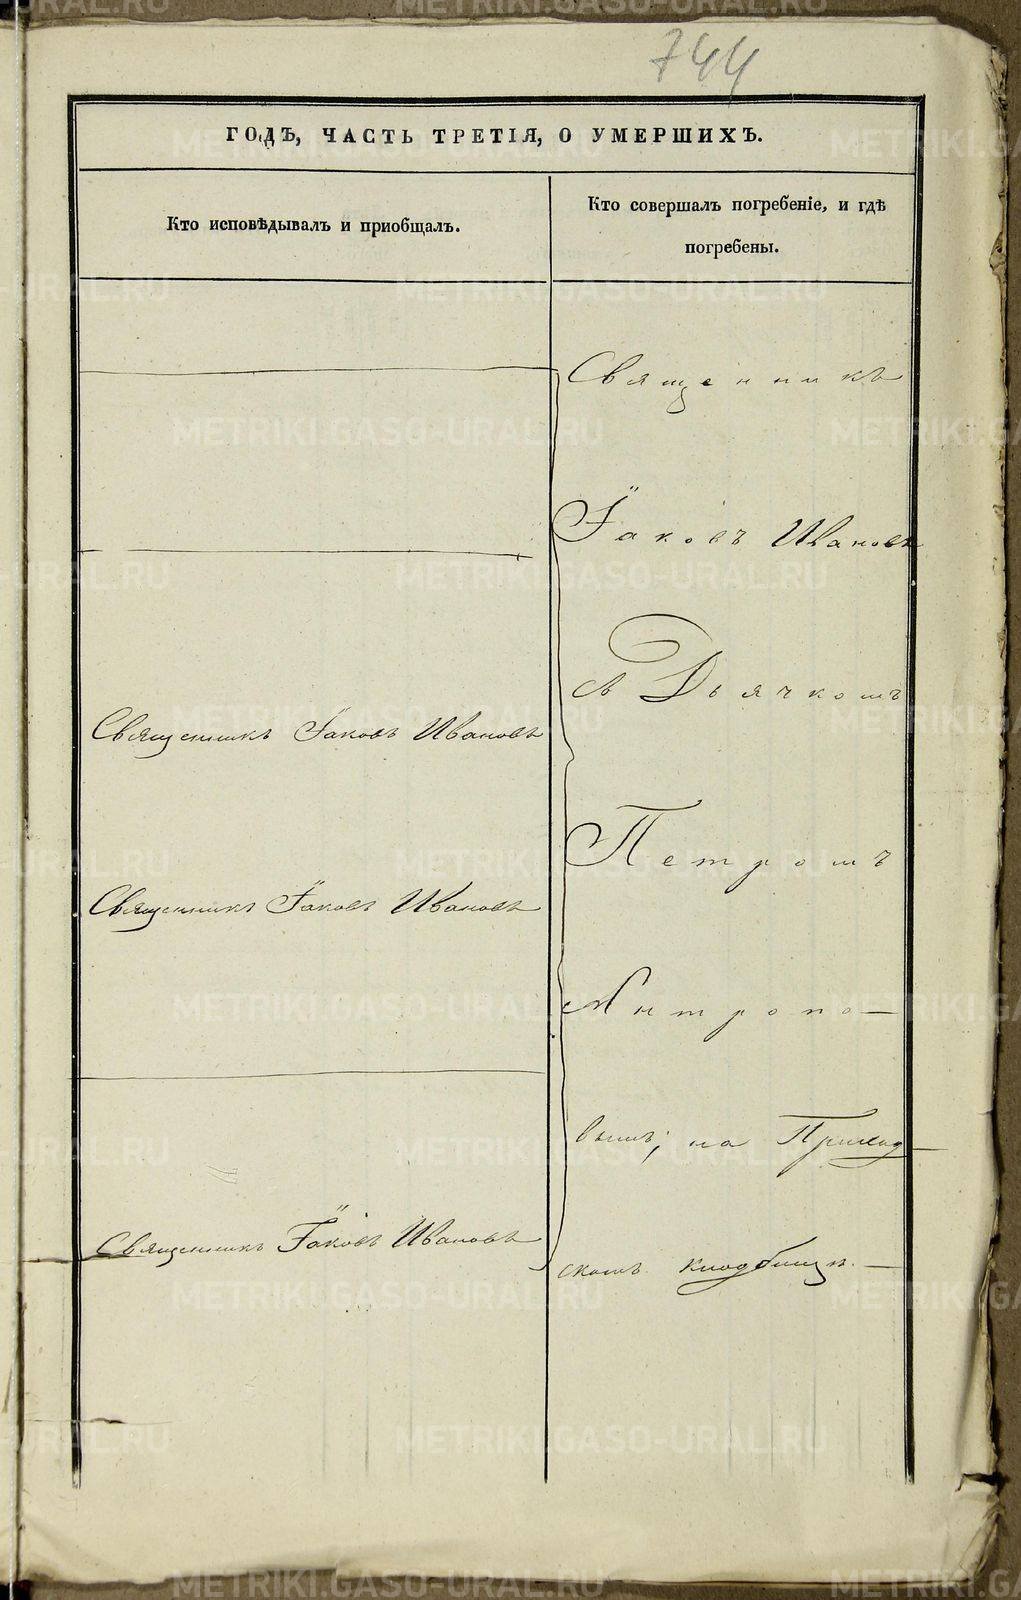 744
ГОДЪ, ЧАСТЬ ТРЕТІЯ, О УМЕРШИХЪ.
Кто исповѣдывалъ и пріобщалъ.
Кто совершалъ погребеніе, и гдѣ
погребены.
Священникъ Іаковъ Ивановъ
Священникъ Іаковъ Ивановъ
Священникъ Іаковъ Ивановъ
Священникъ
Іаковъ Ивановъ
съ Дьячкомъ
Петромъ
Антропо-
вымъ, на Приход
скомъ кладбищѣ.
METRIKI.GASO-URAL.RU